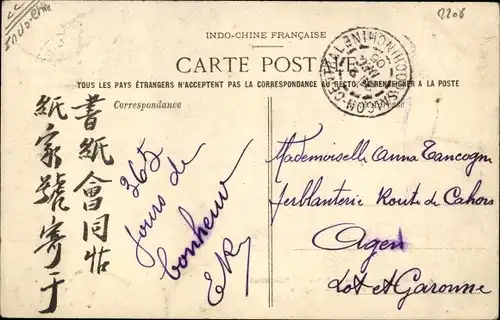 Indo-Chine
2206
INDO-CHINE FRANÇAISE
CARTE POSTALE
TOUS LES PAYS ÉTRANGERS N'ACCEPTENT PAS LA CORRESPONDANCE AU RECTO. SE RENSEIGNER A LA POSTE
SAIGON-CENTRAL
COCHINCHINE
Correspondance
Adresse
書紙會同帖
紙家號寄于
365
jours de
bonheur
Mademoiselle Anna Tancogne
ferblanterie Route de Cahors
Agen
Lot et Garonne